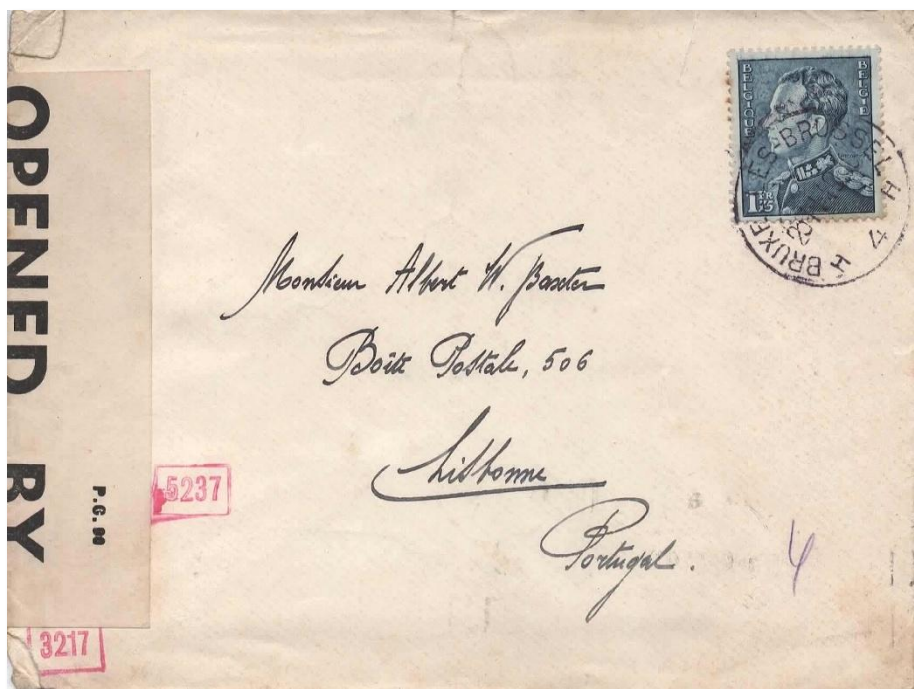 OPENED BY
P.G. 90
BELGIQUE
BELGIE
1 FR 75
BRUXELLES-BRUSSEL
H 4 H
Monsieur Albert W. Baxter
Boîte Postale, 506
Lisbonne
Portugal.
5237
4
3217